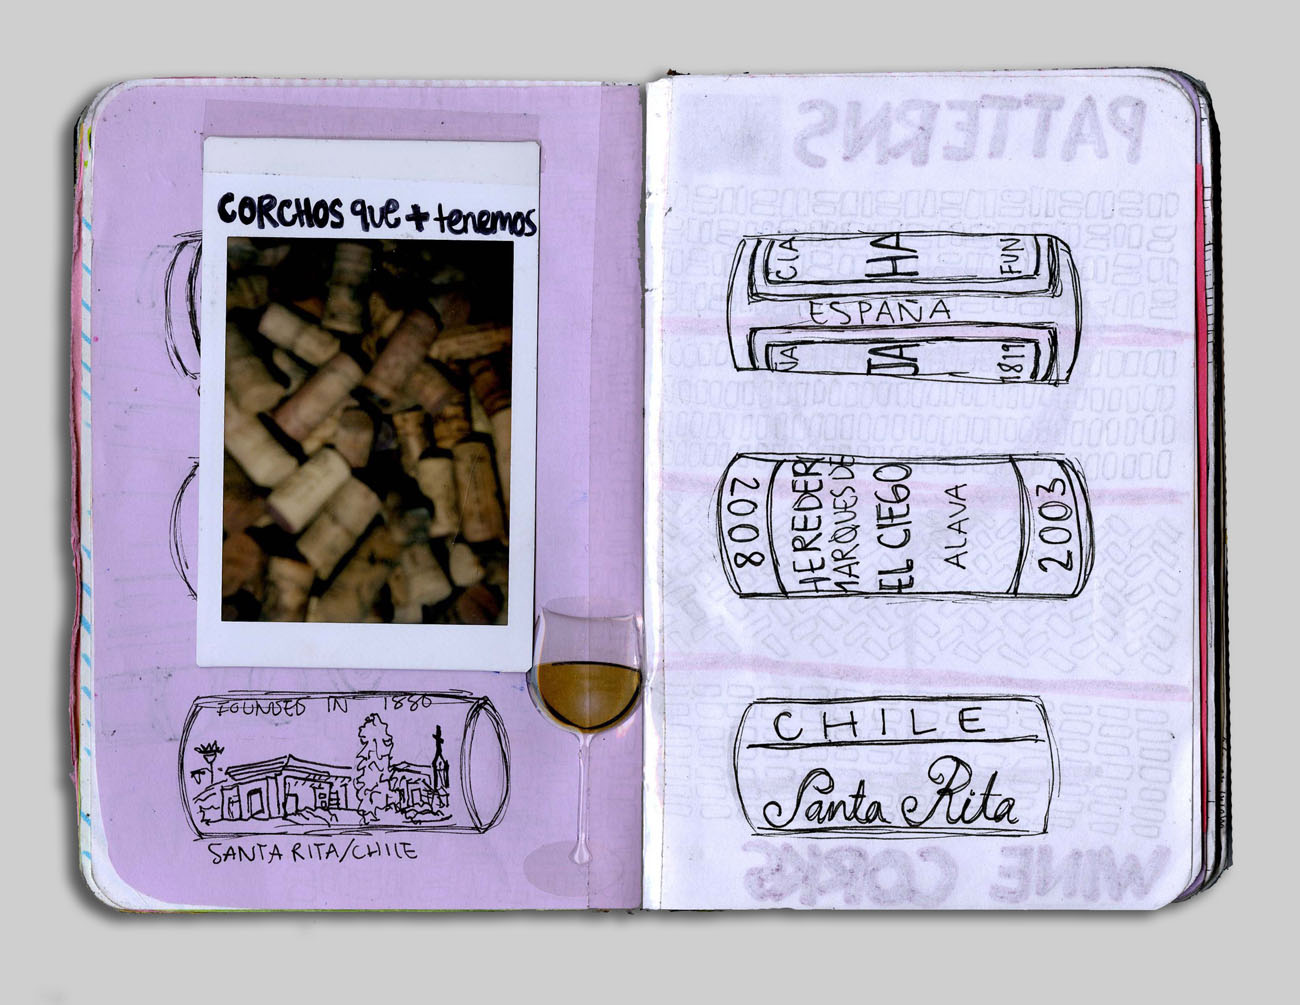 CORCHOS que + tenemos
FOUNDED IN 1880
SANTA RITA/CHILE
PATTERNS
CIA
HA
FUN
ESPAÑA
NA
JA
1819
2008
HEREDER
MARQUES DE
EL CIEGO
ALAVA
2003
CHILE
Santa Rita
WINE CORKS